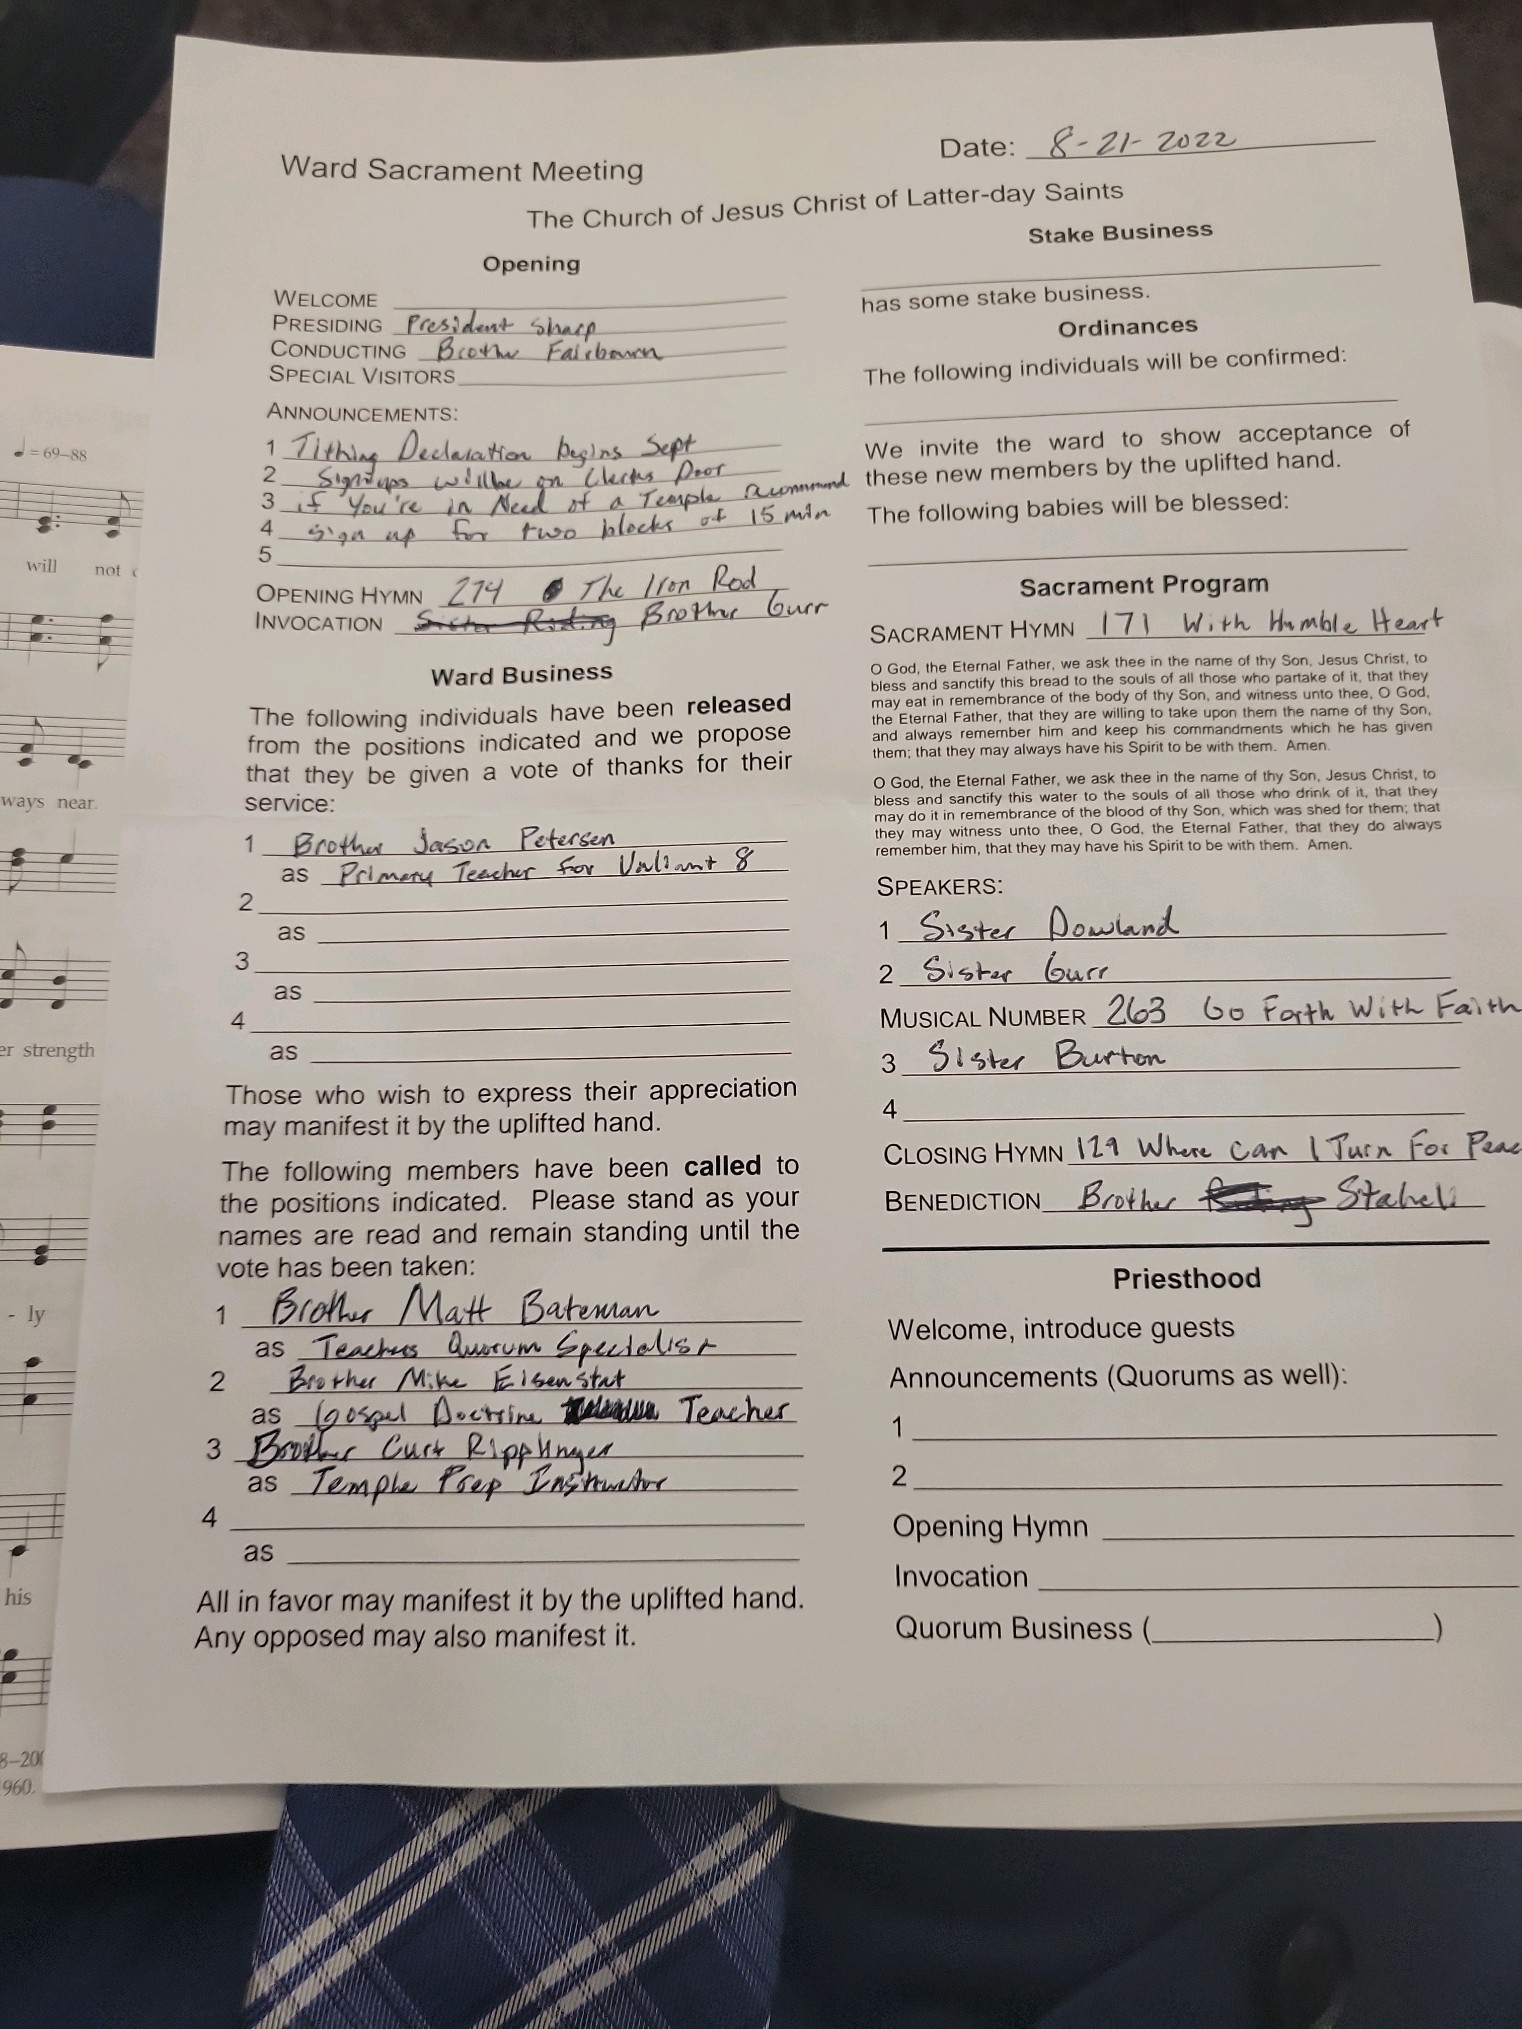 Ward Sacrament Meeting
Date: 8-21-2022
The Church of Jesus Christ of Latter-day Saints
Opening
WELCOME
PRESIDING President Sharp
CONDUCTING Brother Fairbourn
SPECIAL VISITORS
ANNOUNCEMENTS:
1 Tithing Declaration begins Sept
2 Signups will be on Clerks Door
3 if You're in Need of a Temple recommend
4 sign up for two blocks of 15 min
5
OPENING HYMN 274 The Iron Rod
INVOCATION Sister Brother Gurr
Ward Business
The following individuals have been released
from the positions indicated and we propose
that they be given a vote of thanks for their
service:
1 Brother Jason Petersen
as Primary Teacher for Valiant 8
2
as
3
as
4
as
Those who wish to express their appreciation
may manifest it by the uplifted hand.
The following members have been called to
the positions indicated. Please stand as your
names are read and remain standing until the
vote has been taken:
1 Brother Matt Bateman
as Teachers Quorum Specialist
2 Brother Mike Eisenstat
as Gospel Doctrine Teacher
3 Brother Curt Ripplinger
as Temple Prep Instructor
4
as
All in favor may manifest it by the uplifted hand.
Any opposed may also manifest it.
Stake Business
has some stake business.
Ordinances
The following individuals will be confirmed:
We invite the ward to show acceptance of
these new members by the uplifted hand.
The following babies will be blessed:
Sacrament Program
SACRAMENT HYMN 171 With Humble Heart
O God, the Eternal Father, we ask thee in the name of thy Son, Jesus Christ, to
bless and sanctify this bread to the souls of all those who partake of it, that they
may eat in remembrance of the body of thy Son, and witness unto thee, O God,
the Eternal Father, that they are willing to take upon them the name of thy Son,
and always remember him and keep his commandments which he has given
them; that they may always have his Spirit to be with them. Amen.
O God, the Eternal Father, we ask thee in the name of thy Son, Jesus Christ, to
bless and sanctify this water to the souls of all those who drink of it, that they
may do it in remembrance of the blood of thy Son, which was shed for them; that
they may witness unto thee, O God, the Eternal Father, that they do always
remember him, that they may have his Spirit to be with them. Amen.
SPEAKERS:
1 Sister Dowland
2 Sister Gurr
MUSICAL NUMBER 263 Go Forth With Faith
3 Sister Burton
4
CLOSING HYMN 129 Where Can I Turn For Peac
BENEDICTION Brother Staheli
Priesthood
Welcome, introduce guests
Announcements (Quorums as well):
1
2
Opening Hymn
Invocation
Quorum Business ( )
♩ = 69–88
will not
ways near.
er strength
- ly
his
8–20
960.